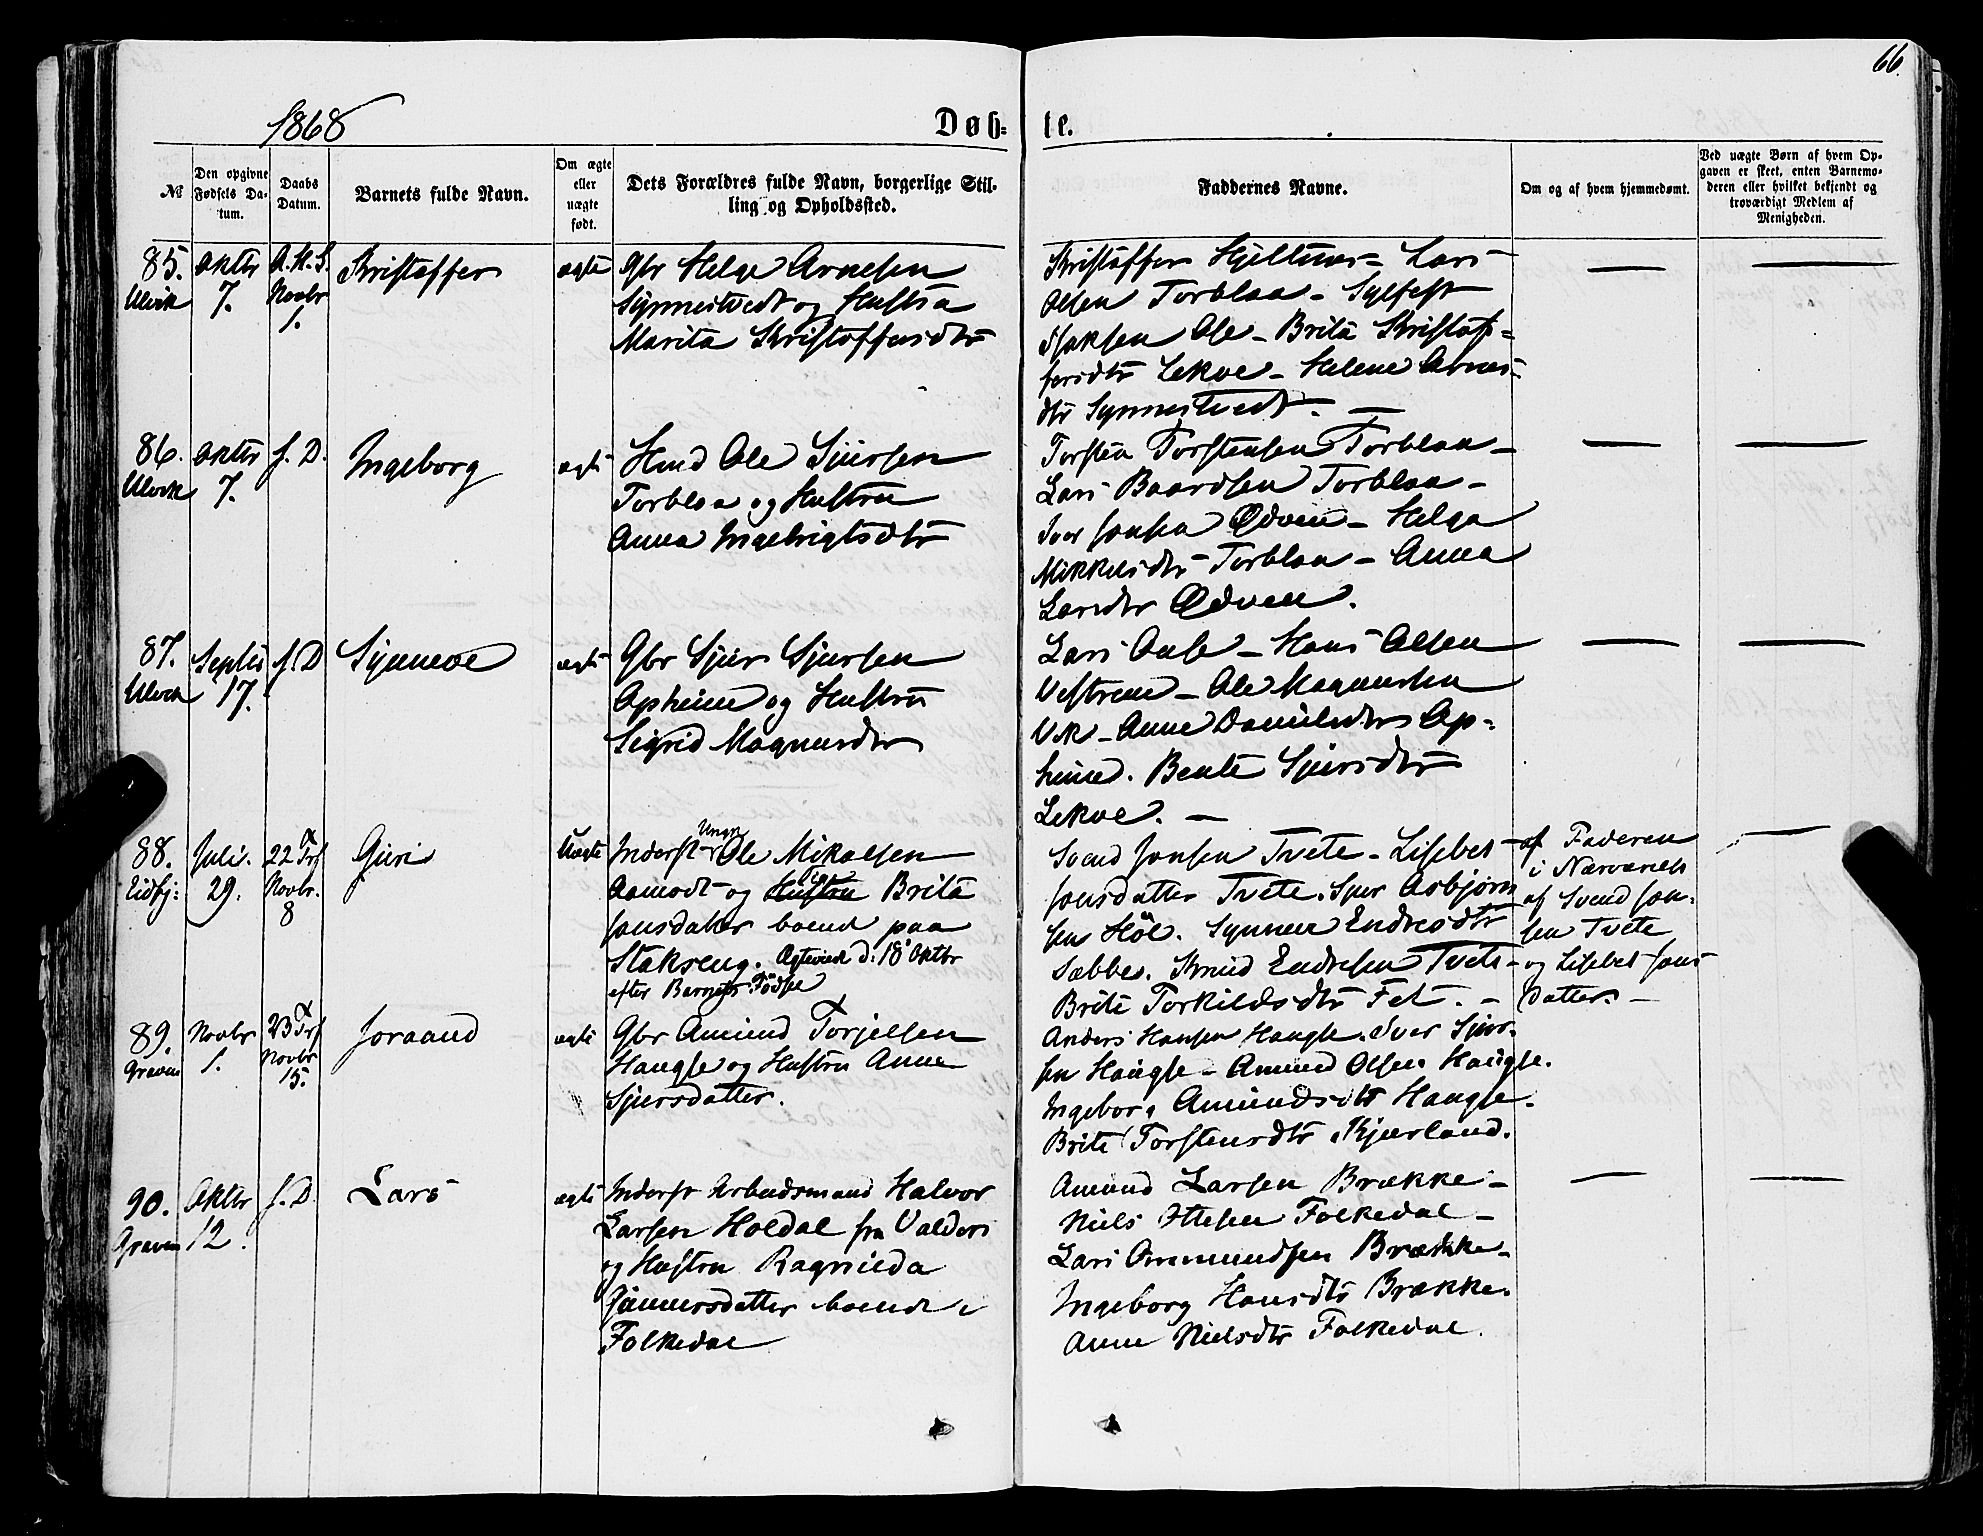 66.
1868
Døb- te.
№
Den opgivne Fødsels Datum.
Daabs Datum.
Barnets fulde Navn.
Om ægte eller uægte født.
Dets Forældres fulde Navn, borgerlige Stilling og Opholdssted.
Faddernes Navne.
Om og af hvem hjemmedøbt.
Ved uægte Børn af hvem Opgaven er skeet, enten Barnemoderen eller hvilket bekjendt og troværdigt Medlem af Menigheden.
85. Ulvik
Oktbr 7.
A.H.S. Novbr 1.
Kristoffer
ægte
Gbr Helge Arnesen
Synnestvedt og Hustru
Marita Kristoffersdtr
Kristoffer Hjeltnes – Lars
Olsen Torblaa – Sylfest
Isaksen Ose – Brita Kristof-
fersdtr Lekve – Helene Arnes-
dtr Synnestvedt. –
86. Ulvik
Oktbr 7.
s. D.
Ingeborg
ægte
Hmd Ole Sjursen
Torblaa og Hustru
Anna Ingebrigtsdtr
Torsten Torstensen Torblaa –
Lars Baardsen Torblaa –
Iver Jonsen Ødven – Helga
Mikkelsdtr Torblaa – Anna
Larsdtr Ødven.
87. Ulvik
Septbr 17.
s. D
Synneve
ægte
Gbr Sjur Sjursen
Opheim og Hustru
Sigrid Magnusdtr
Lars Onse – Hans Olsen
Vestrem – Ole Magnussen
Vik – Anna Danielsdtr Op-
heim. Bente Sjursdtr
Lekve. –
88. Eidfj:
Juli. 29.
22 Trf Novbr. 8
Guri
Uægte
Inderst Ungk Ole Mikalsen
Aamodt og Hustru Brita
Jonsdatter boende paa
Stakseng. Ægteviede d: 18 Oktbr
efter Barnets Fødsel
Svend Jonsen Tveite – Lisbet
Jonsdatter Tveite. Sjur Asbjørn-
sen Höl. Synneve Endresdtr
Sæbbe. Knud Endresen Tveite –
Brita Torkildsdtr Fet. –
af Faderen
i Nærværelse
af Svend Jon-
sen Tveite
og Lisbet Jons
datter. –
89. Graven
Novbr 1.
23 Trf Novbr 15.
Joraand
ægte
Gbr Amund Torjelsen
Haugse og Hustru Anna
Sjursdatter.
Anders Hansen Haugse. Iver Sjur-
sen Haugse – Amund Olsen Haugse.
Ingeborg Amundsdtr Haugse.
Brita Torstensdtr Kjærland.
90. Graven
Oktbr 12.
s. D.
Lars
ægte
Inderst Arbeidsmand Halvor
Larsen Holdal fra Valders
og Hustru Ragnilda
Gunnersdatter boende i
Folkedal
Amund Larsen Brække –
Niels Ottesen Folkedal –
Lars Ommundsen Brække –
Ingeborg Hansdtr Brække.
Anna Nielsdtr Folkedal.